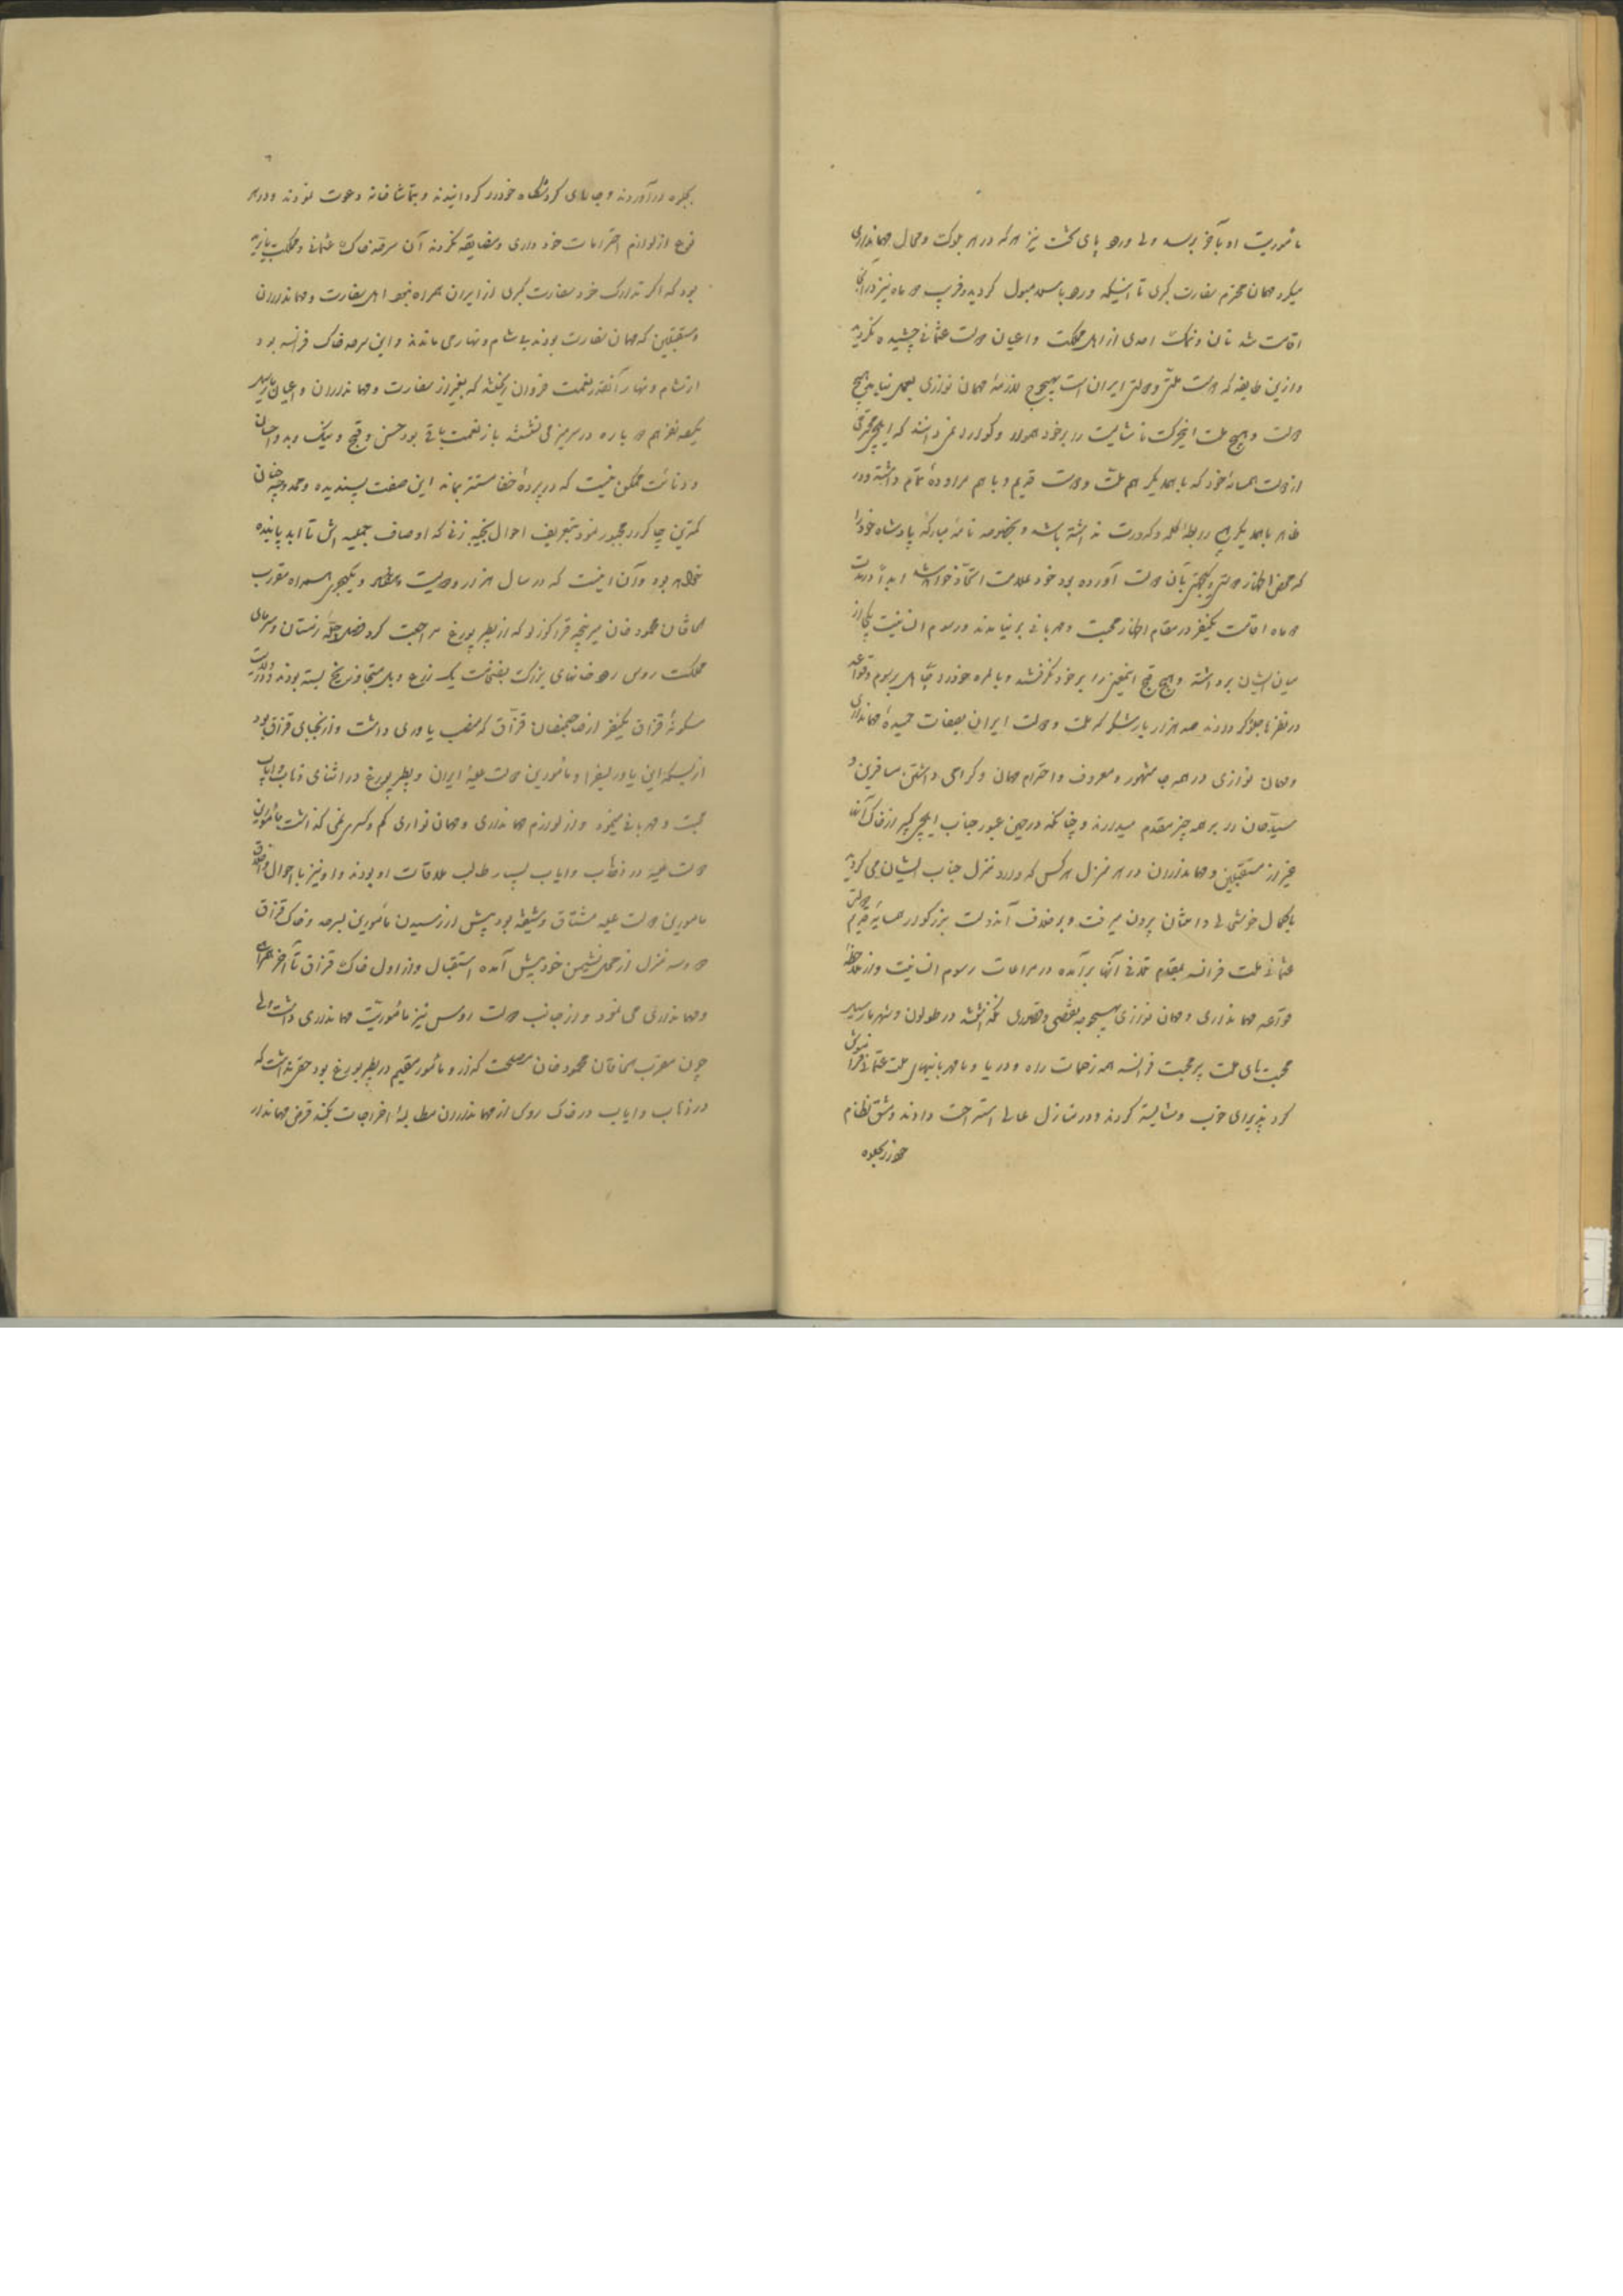 مأموریت او بآخر برسد ولی ورود پای تخت نیز هر که در هر بلوک و محال مهمانداری
میکرد مهمان محترم سفارت کبری تا اینکه ورود باسلامبول گردید و قریب دو ماه نیز در آنجا
اقامت شد نان و نمک احدی از اهل مملکت و اعیان دولت عثمانی چشیده نگردید
و ازین طایفه که دولت ایران است بهیچوجه لازمهٔ مهمان نوازی بعمل نیامد هیچ
دولت و هیچ ملت اینحرکت ناشایست را بر خود هموار و گوارا نمی دانند که ایلچی محترمی
از دولت همسایهٔ خود که با همدیگر هم ملت و دولت قدیم و با هم مراودهٔ تمام داشته و در
ظاهر با همدیگر هیچ رابطهٔ گله و کدورت نداشته باشد و بخصوصه نامهٔ مبارکهٔ پادشاه خود را
که محض اظهار دوستی و یکجهتی بآن دولت آورده بود خود علامت اتحاد خواهد شد ابداً در مدت
دو ماه اقامت یکنفر در مقام اظهار محبت و مهربانی بر نیامدند و رسوم انسانیت یکباره از
میان ایشان برداشته و هیچ قبح اینمعنی را بر خود نگرفتند و بالمره خود را جاهل برسوم و قواعد
در نظرها جلوه‌گر دادند صد هزار بار شکر که ملت و دولت ایران بصفات حمیدهٔ مهمانداری
و مهمان نوازی در همه جا مشهور و معروف و احترام مهمان و گرامی داشتن مسافرین و
سیاحان را بر همه چیز مقدم میدارند و چنانکه در حین عبور جناب ایلچی کبیر از خاک آنها
غیر از مستقبلین و مهمانداران در هر منزل هر کس که وارد منزل جناب ایشان می گردید
با کمال خوشحالی و امتنان بیرون میرفت و بر خلاف آندولت بزرگوار همسایهٔ قدیم
عثمانی ملت فرانسه بمقام تلافی آنها برآمده در مراعات رسوم انسانیت و از ملاحظهٔ
قواعد مهمانداری و مهمان نوازی بهیچوجه نقصی و قصوری نگذاشتند در طولون و شهر مارسیر
محبت‌های ملت پر محبت فرانسه همه زحمات راه و دریا و نامهربانیهای ملت عثمانی را فراموش
کرد پذیرای خوب و شایسته کردند و در منازل عالی استراحت دادند و مشق نظام
خود را بجلوه
بجلوه درآوردند و جاهای گردشگاه خود را گردانیدند و بتماشاخانه دعوت نمودند و در هر
نوع از لوازم احترامات خودداری و مضایقه نکردند آن سرحد خاک عثمانی و مملکت
بود که اگر تدارک خود سفارت کبری از ایران همراه نبود اهل سفارت و مهمانداران
و مستقبلین که مهمان سفارت بودند بی شام و نهار می ماندند و این سرحد خاک فرانسه بود
از شام و نهار آنقدر نعمت فراوان ریختند که بغیر از سفارت و مهمانداران و اعیان مارسیر
یکصد نفر هم دوباره در سر میز می نشستند باز نعمت باقی بود حسن و قبح و نیک و بد و احسان
و دنائت ممکن نیست که در پردهٔ خفا مستتر بماند این صفت پسندیده و حمد وجیه چنان
کمترین چاکر را مجبور نمود بتعریف احوال نجیب زنی که اوصاف جمیله اش تا ابد پاینده
خواهد بود و آن اینست که در سال هزار و دویست و هفتاد و یکهجری همراه مقرب
الخاقان محمود خان میرپنجه قراگوزلو که از پطر پورغ مراجعت کرد فصل چلهٔ زمستان و سرمای
مملکت روس رودخانهای بزرگ بضخامت یک ذرع و بل متجاوز یخ بسته بودند و در ولایت
مسکونهٔ قزاق یکنفر از صاحبمنصبان قزاق که منصب یاوری داشت و از نجبای قزاق بود
از بسکه این یاور بسفرا و مأمورین دولت علیهٔ ایران و پطر پورغ در اثنای ذهاب و ایاب
محبت و مهربانی مینمود و از لوازم مهمانداری و مهمان نوازی کم و کسری نمی گذاشت مأمورین
دولت علیه در ذهاب و ایاب بسیار طالب ملاقات او بودند و او نیز باحوال و اخلاق
مأمورین دولت علیه مشتاق و شیفته بود پیش از رسیدن مأمورین بسرحد و خاک قزاق
دو سه منزل از محل نشیمن خود پیش آمده استقبال و از اول خاک قزاق تا آخر همراهی
و مهمانداری می نمود و از جانب دولت روس نیز مأموریت مهمانداری داشت ولی
چون مقرب الخاقان محمود خان مصلحت گذار و مأمور مقیم در پطر بورغ بود حق نداشت که
در ذهاب و ایاب در خاک روس از مهمانداران مطالبهٔ اخراجات بکند فرض مهماندار